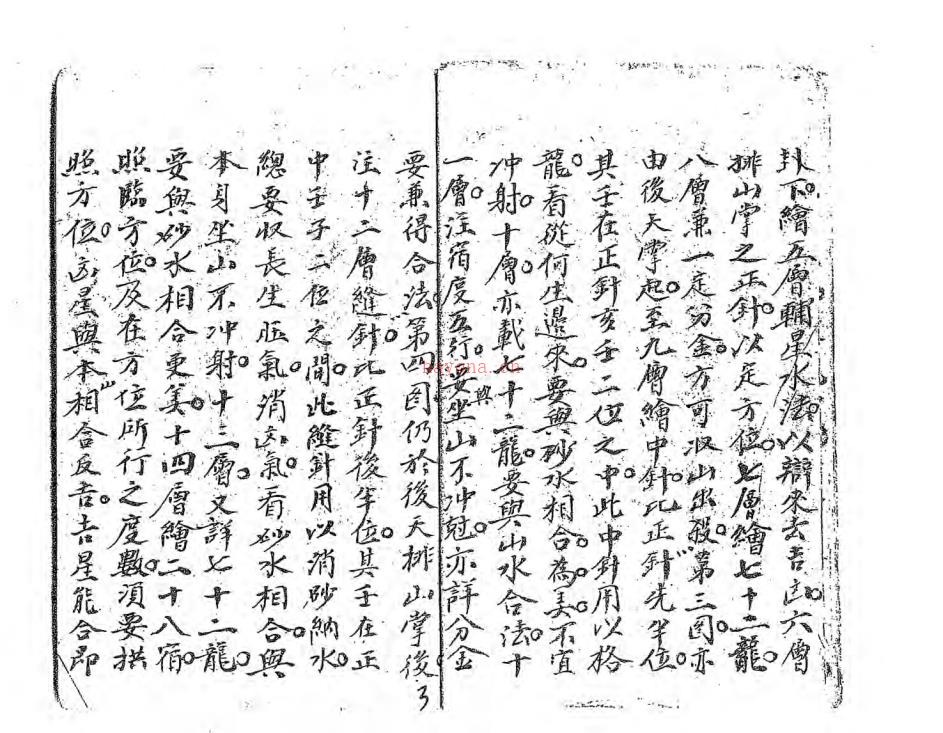 卦下。繪五層輔星水法。以辯來去吉凶。六層
排山掌之正針。以定方位。七層繪七十二龍。
八層兼一定分金。方可收山出殺。第三圖亦
由後天掌起。至九層繪中針。比正針先半位。
其壬在正針亥壬二位之中。此中針用以格
龍。看從何生邊來。要與砂水相合。為美。不宜
冲射。十層亦載七十二龍。要與山水合法。十
一層。注宿度五行。要與坐山不冲尅。亦詳分金
要兼得合法。第四圖仍於後天排山掌後
注十二層縫針。比正針後半位。其壬在正
中壬子二位之間。此縫針用以消砂納水。
總要收長生旺氣。消凶氣。看砂水相合。與
本身坐山不冲射。十三層。又詳七十二龍。
要與砂水相合更美。十四層繪二十八宿。
照臨方位。及在方位所行之度數。須要拱
照方位。凶星與本相合反吉。吉星能合即
3
kayena.cn